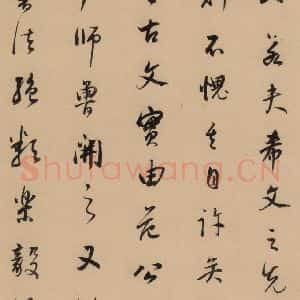 若夫希文之先
不愧其自許矣
古文實由范公
師魯開之又
法絕類樂毅
Shufawang.CN